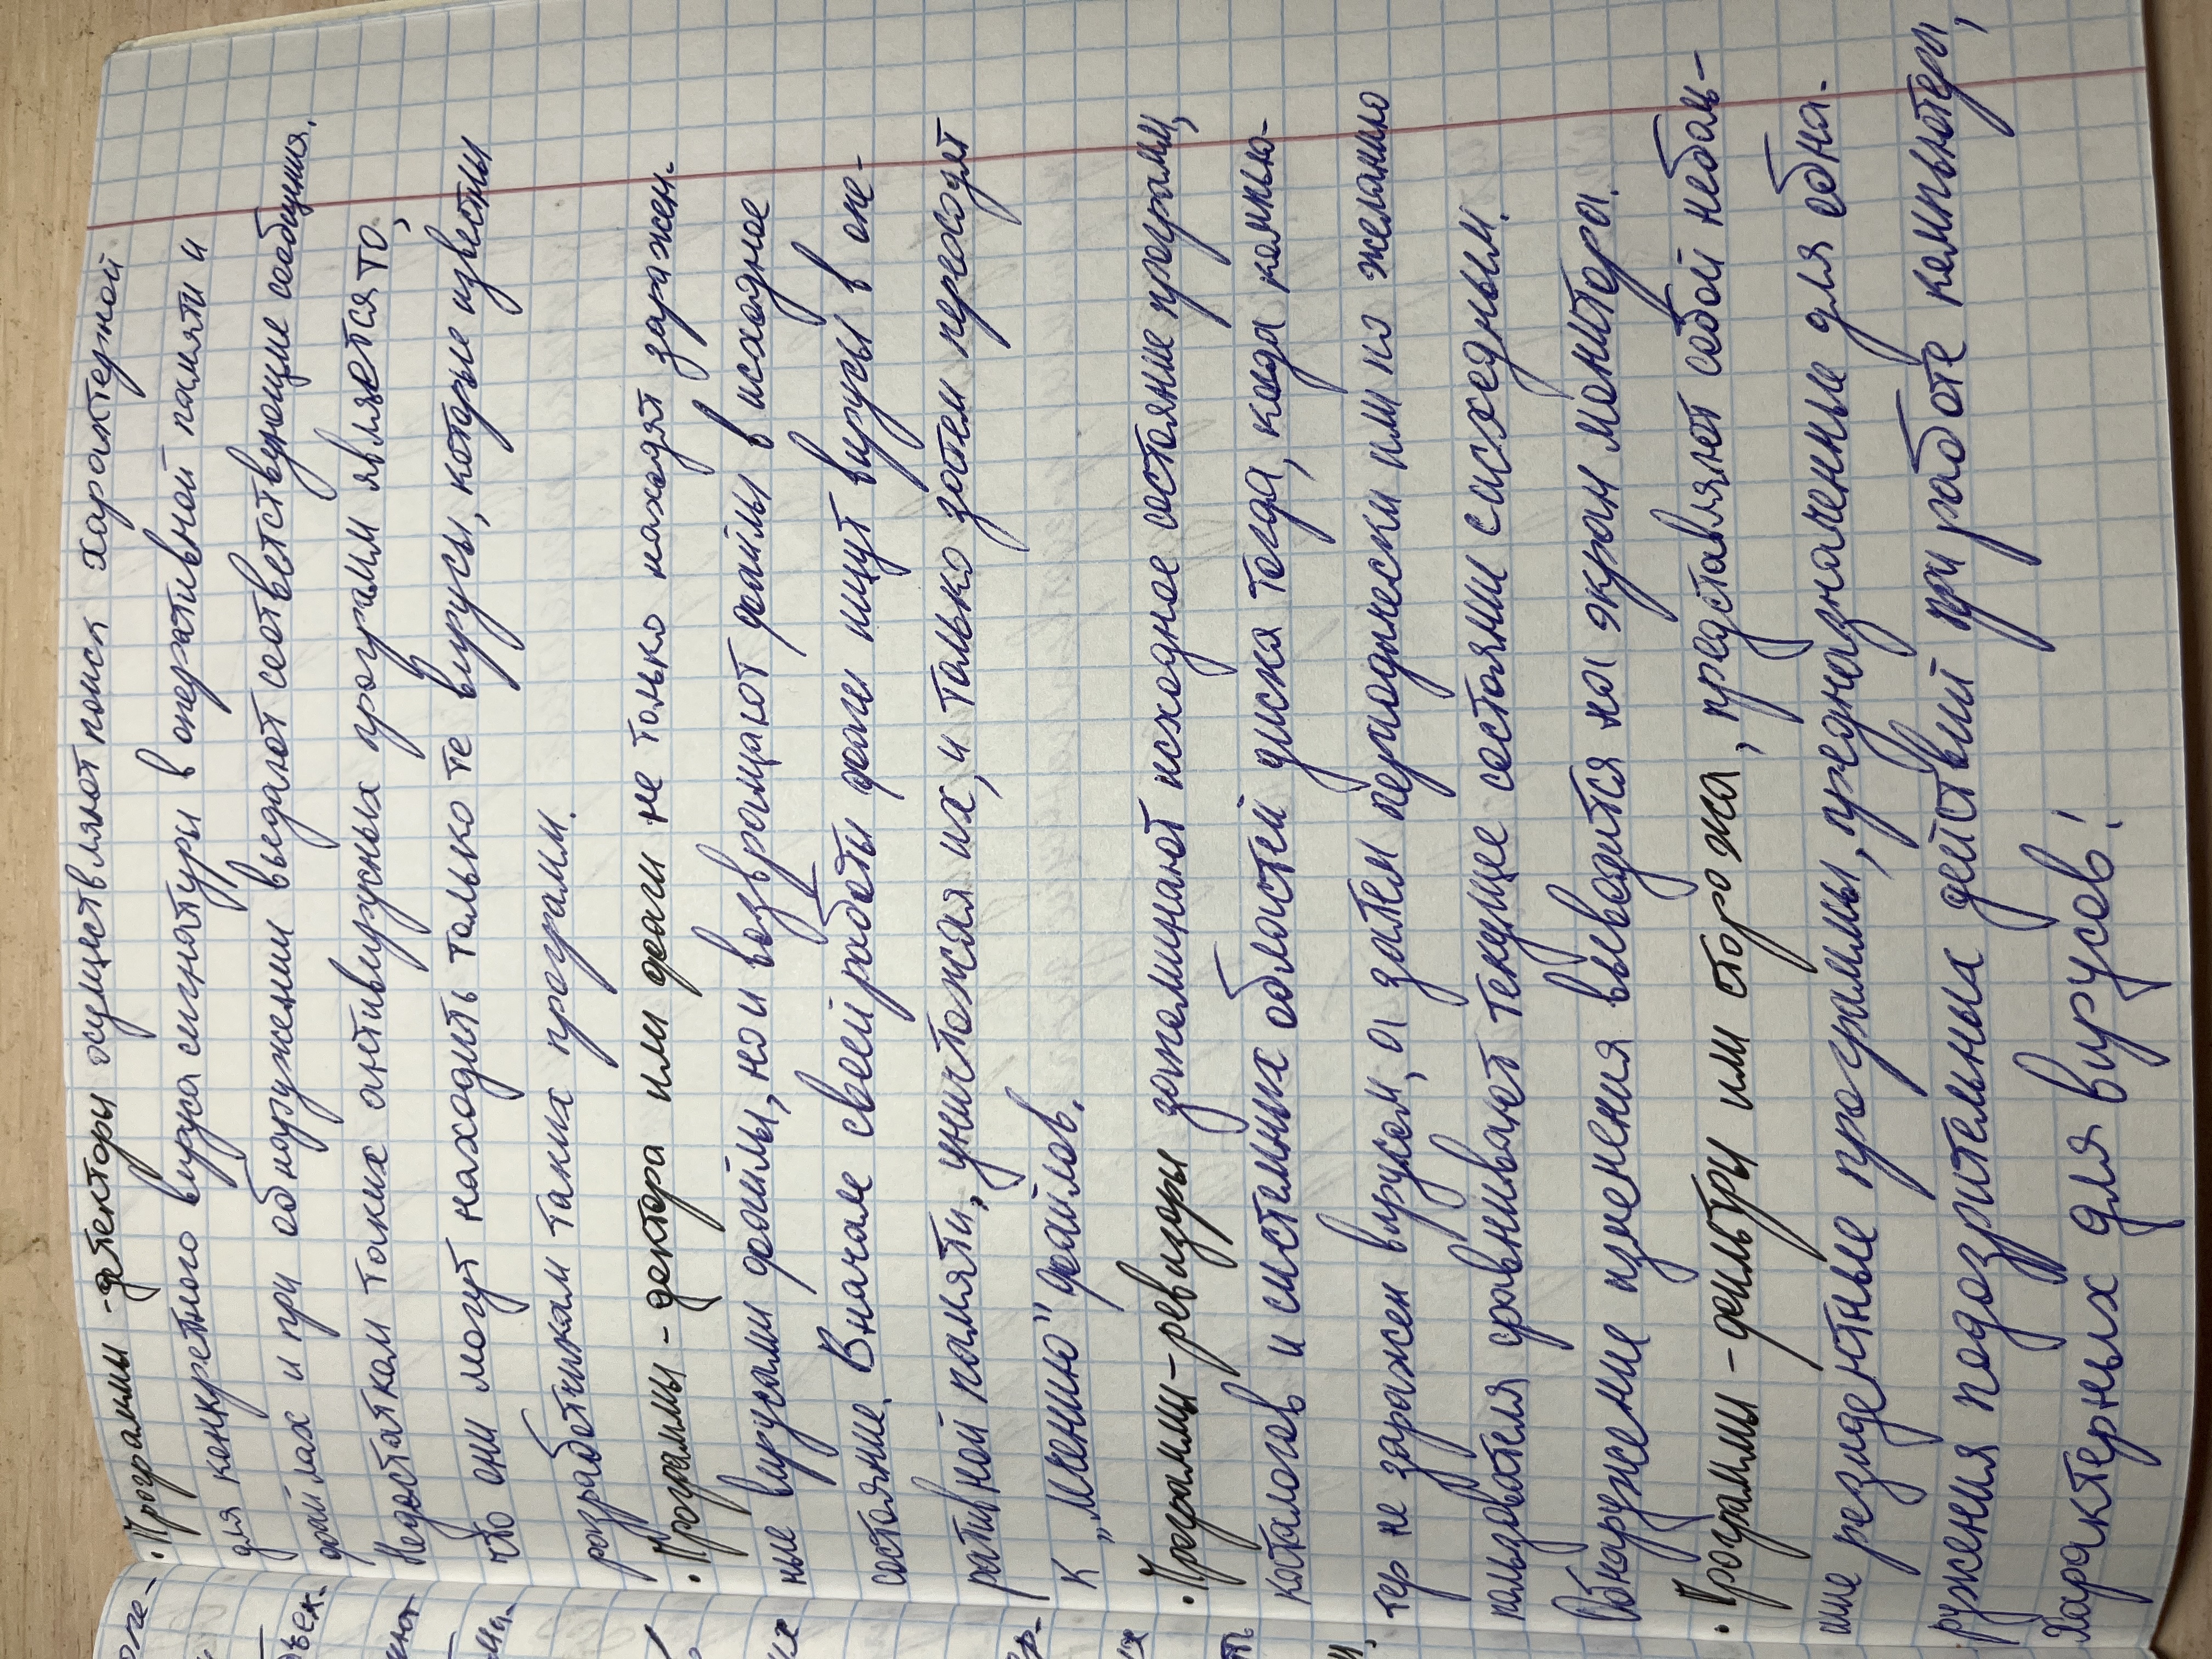 • Программы - детекторы осуществляют поиск характерной
для конкретного вируса сигнатуры в оперативной памяти и
файлах и при обнаружении выдают соответствующие сообщения.
Недостатком таких антивирусных программ является то,
что они могут находить только те вирусы, которые известны
разработчикам таких программ.
• Программы - доктора или фаги не только находят заражен-
ные вирусами файлы, но и возвращают файлы в исходное
состояние. В начале своей работы фаги ищут вирусы в опе-
ративной памяти, уничтожая их, и только затем переходят
к „лечению" файлов.
• Программы - ревизоры запоминают исходное состояние программ,
каталогов и системных областей диска тогда, когда компью-
тер не заражен вирусом, а затем периодически или по желанию
пользователя сравнивают текущее состояни с исходным.
Обнаружение изменения выводится на экран монитора.
• Программы - фильтры или сторожа, представляют собой неболь-
шие резидентные программы, предназначенные для обна-
ружения подозрительных действий при работе компьютера,
характерных для вирусов!